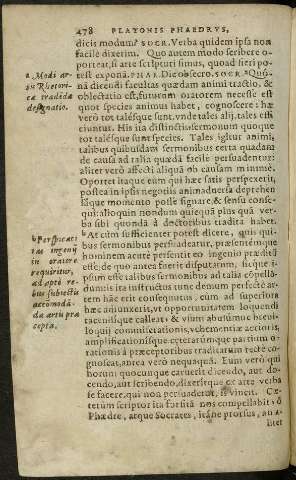 478 PLATONIS PHAEDRVS,
dicis modum? SOCR. Verba quidem ipsa non
facilè dixerim. Quo autem modo scribere o-
porteat, si arte scripturi simus, quoad fieri po-
test exponā. PHAE. Dic obsecro. SOCR. ª Quo-
nā dicendi facultas quædam animi tractio, &
oblectatio est, futurum oratorem necesse est
quot species animus habet, cognoscere: hæ
verò tot talésque sunt, vnde tales alij, tales effi
ciuntur. His ita distinctis, sermonum quoque
tot talésque sunt species. Tales igitur animi,
talibus quibusdam sermonibus certa quadam
de causa ad talia quædā facilè persuadentur:
aliter verò affecti aliqua ob causam minimè.
Oportet itaque eum qui hæc satis perspexerit,
postea in ipsis negotiis animaduersa deprehen
dere, & sensu conse-
qui: alioquin nondum quicquā plus quā ver-
ba sibi quondā à doctoribus tradita habet.
ᵇ At cùm sufficienter potest dicere, quis qui-
bus sermonibus persuadeatur, præsentémque
hominem acutè persentit eo ingenio præditū
esse, de quo antea fuerit disputatum, sicque i-
psum esse talibus sermonibus ad talia cōpellā-
dum, is ita instructus tunc demum perfectè ar-
tem hāc erit consequutus, cùm ad superiora
hæc adiunxerit, vt opportunitatem loquendi
tacendique calleat: & vsum abusúmque breui-
loquij commiserationis, vehementiæ actionis,
amplificationisque cæterarúmque partium o-
rationis à præceptoribus traditarum rectè co-
gnoscat, antea verò nequaquā. Eum verò qui
horum quocunque caruerit dicendo, aut do-
cendo, aut scribendo, dixerítque ex arte verba
se facere, qui non persuadetur, is vincit. Cæ-
terùm scriptor ita forsitā nos compellabit: ô
Phædre, atque Socrates, itáne prorsus, an a-
liter
a Modi ar-
tis Rhetori-
cæ tradēdæ
designatio.
b Perspicaci
tas ingenij
in oratore
requiritur,
ad apta re-
bus subiectis
accommodā
da artis præ
cepta.